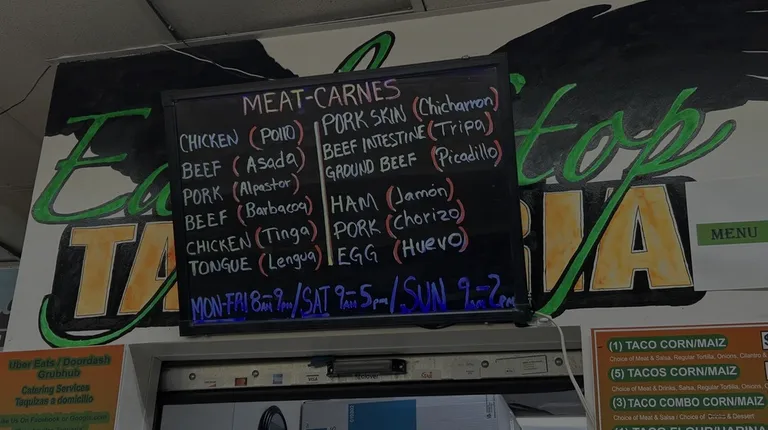 MEAT-CARNES
CHICKEN (Pollo)
BEEF (Asada)
PORK (Alpastor)
BEEF (Barbacoa)
CHICKEN (Tinga)
TONGUE (Lengua)
PORK SKIN (Chicharron)
BEEF INTESTINE (Tripa)
GROUND BEEF (Picadillo)
HAM (Jamón)
PORK (Chorizo)
EGG (Huevo)
MON-FRI 8am-9pm/SAT 9am-5pm/SUN 9am-2pm
stop
MENU
Uber Eats/Doordash
Grubhub
Catering Services
Taquizas a domicilio
(1) TACO CORN/MAIZ
Choice of Meat & Salsa, Regular Tortilla, Onions, Cilantro &
(5) TACOS CORN/MAIZ
Choice of Meat & Drinks, Salsa, Regular Tortilla, Onions
(3) TACO COMBO CORN/MAIZ
Choice of Meat & Salsa / Choice of Drink & Dessert